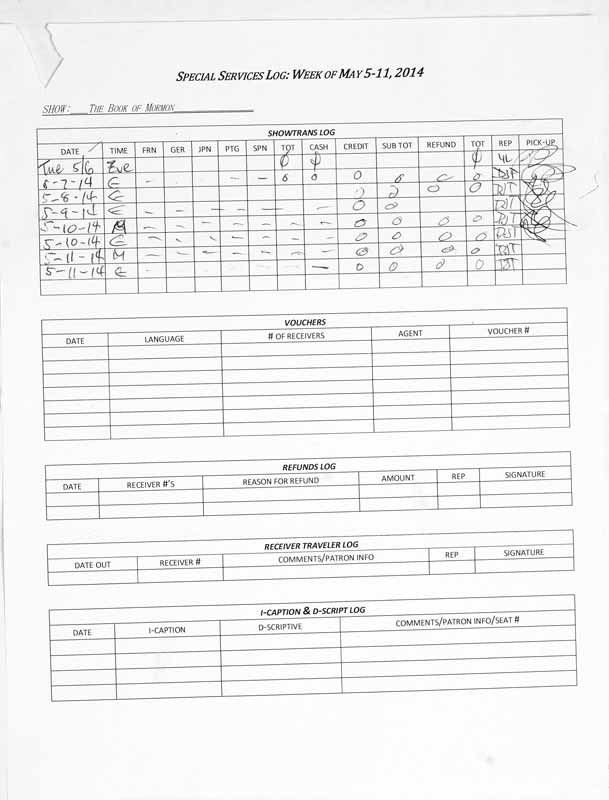 SPECIAL SERVICES LOG: WEEK OF MAY 5-11, 2014
SHOW: THE BOOK OF MORMON
SHOWTRANS LOG
DATE TIME FRN GER JPN PTG SPN TOT CASH CREDIT SUB TOT REFUND TOT REP PICK-UP
Tue 5/6 Eve ϕ ϕ ϕ
5-7-14 E - - - - - 0 0 0 0 0 0 DJT
5-8-14 E 0 0 0 0 DJT
5-9-14 E - - - - - - - 0 0 DJT
5-10-14 M - - - - - - - 0 0 0 0 DJT
5-10-14 E - - - - - - - 0 0 0 0 DJT
5-11-14 M - - - - - - - 0 0 0 0 DJT
5-11-14 E - - - - - - - 0 0 0 0 DJT
VOUCHERS
DATE LANGUAGE # OF RECEIVERS AGENT VOUCHER #
REFUNDS LOG
DATE RECEIVER #'S REASON FOR REFUND AMOUNT REP SIGNATURE
RECEIVER TRAVELER LOG
DATE OUT RECEIVER # COMMENTS/PATRON INFO REP SIGNATURE
I-CAPTION & D-SCRIPT LOG
DATE I-CAPTION D-SCRIPTIVE COMMENTS/PATRON INFO/SEAT #